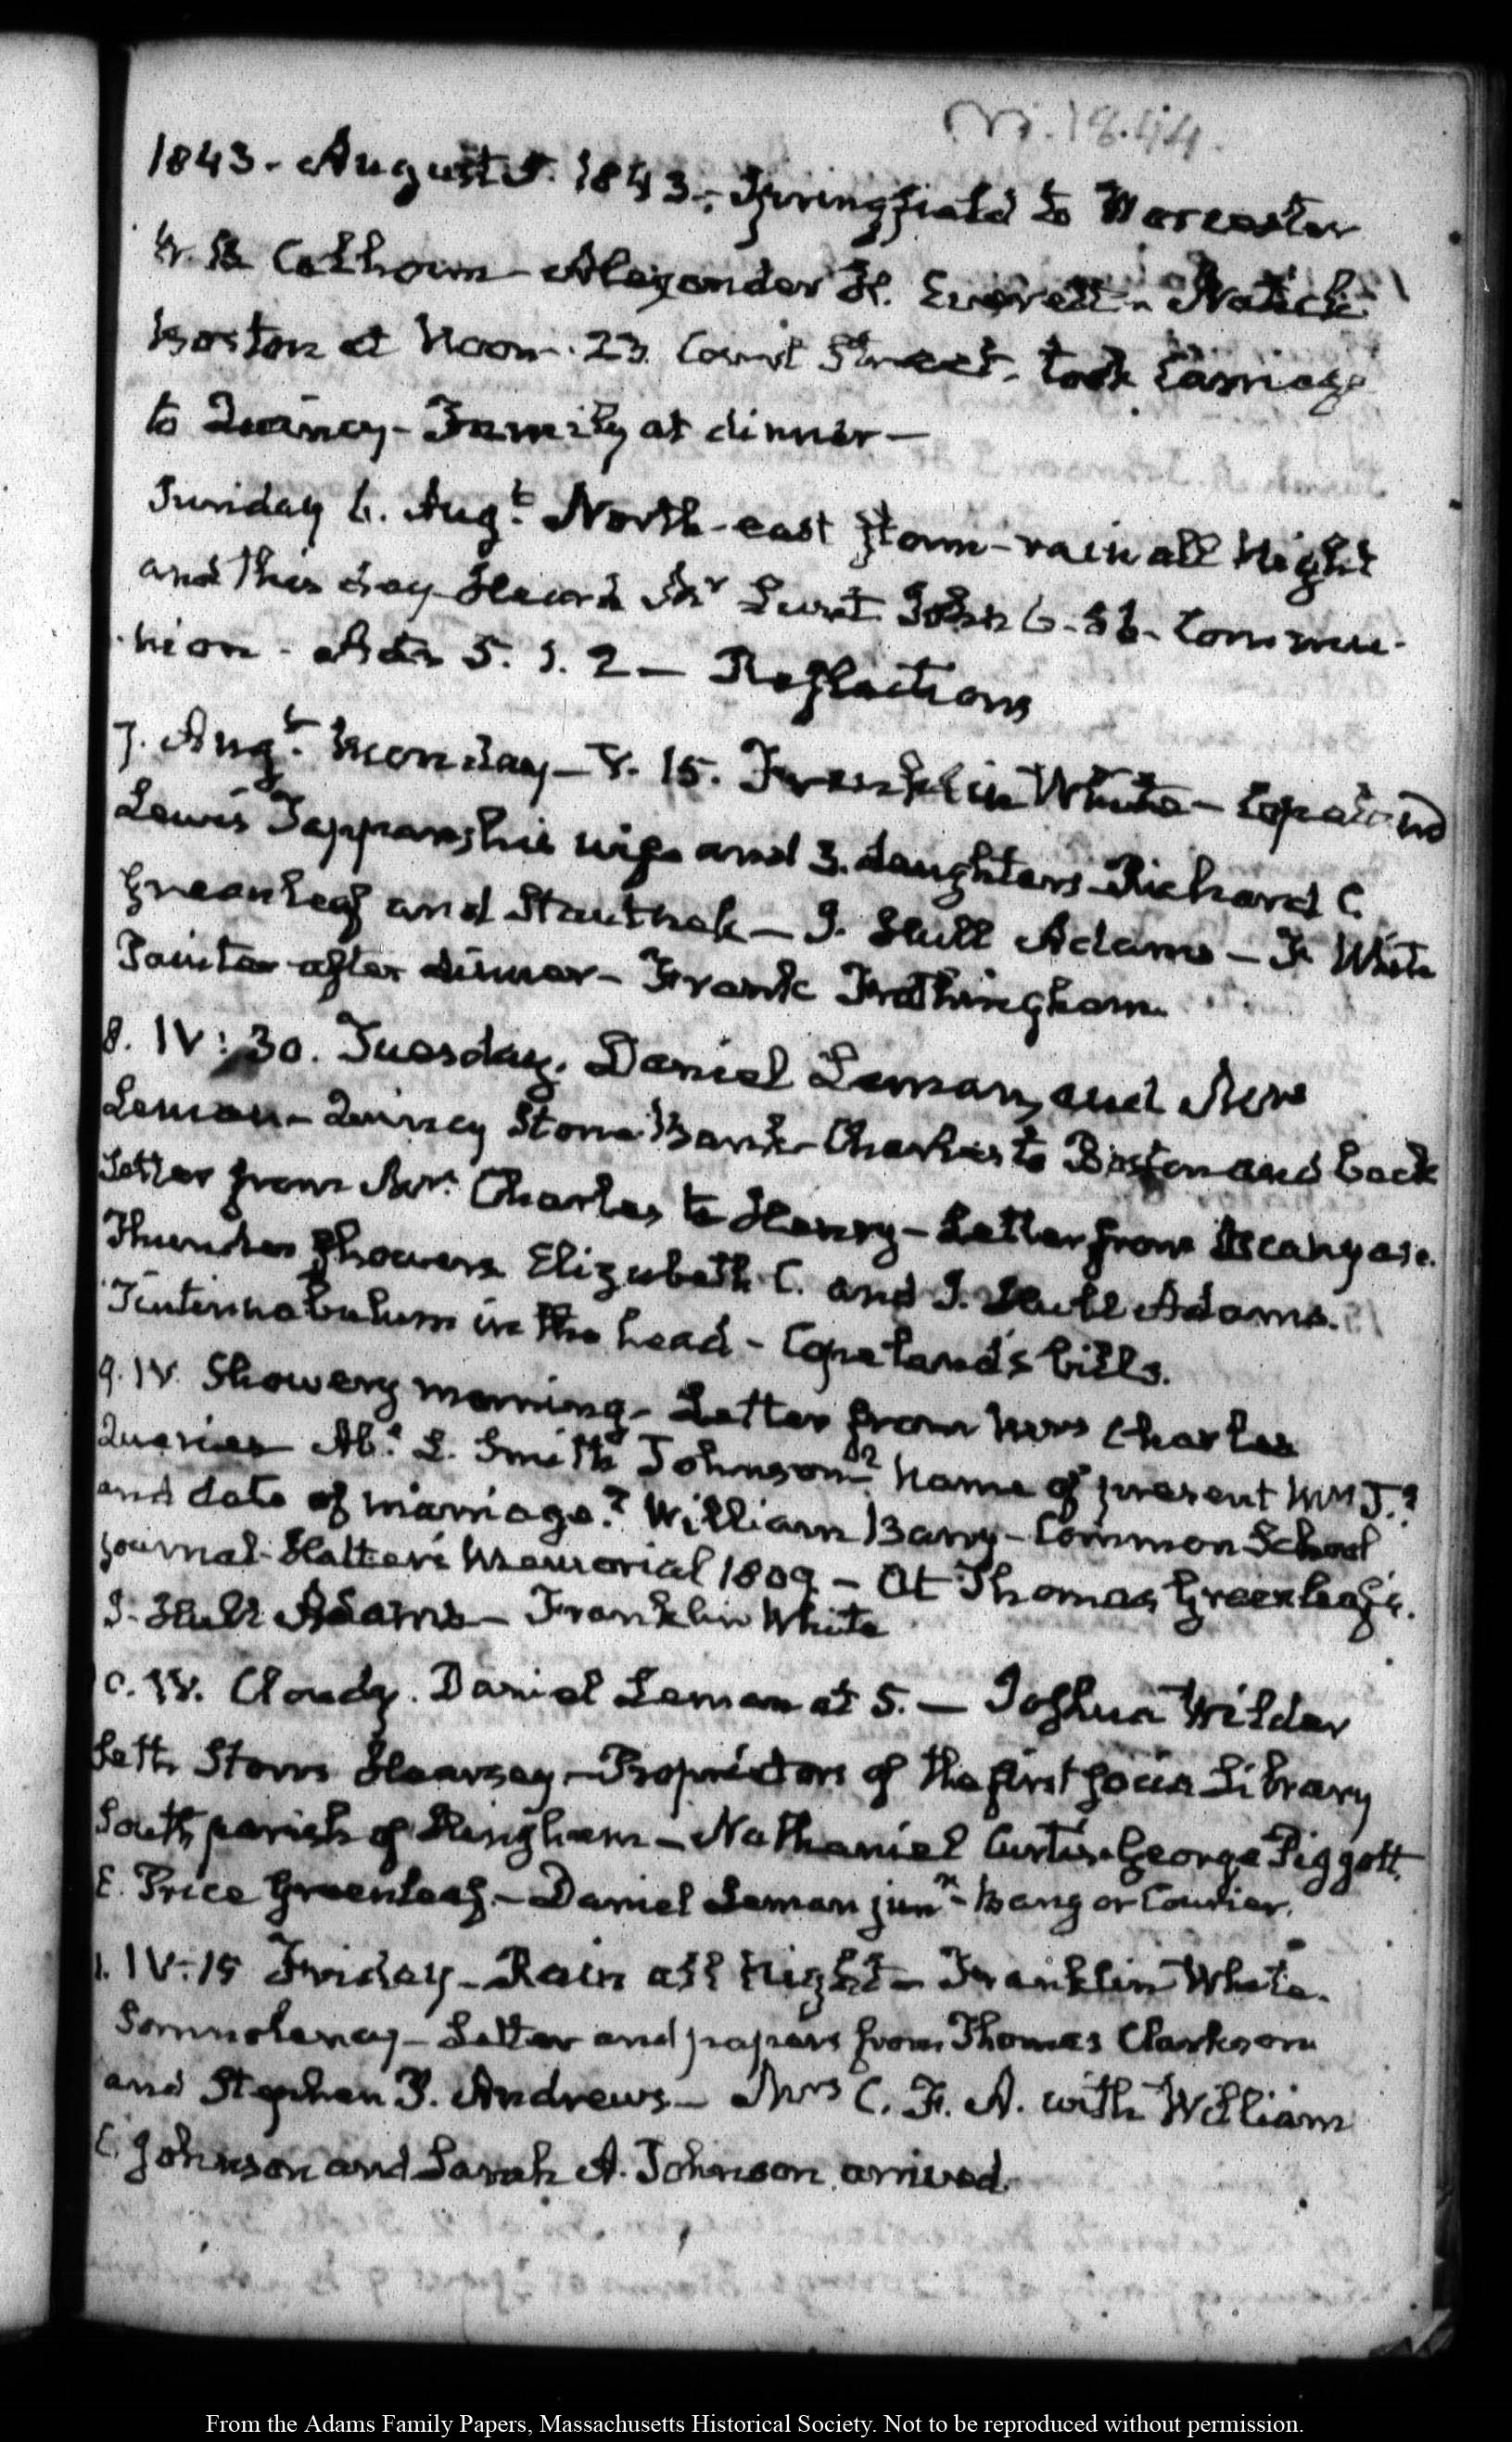 1843. August 5. 1843. Springfield to Worcester
W. B. Calhoun – Alexander H. Everett – Natick
Boston at Noon. 23. Court Street. took Carriage
to Quincy – Family at dinner –
Sunday 6. Augt. North-east storm – rain all Night
and this day Heard Mr Lunt John 6. Commu-
nion – Acts 5. 1. 2 – Reflections
7. Augt. Monday – V. 15. Franklin White – Copeland
Lewis Tappan, his wife and 3. daughters Richard C.
Greenleaf and – I. Hull Adams – F. White
Painter after dinner – Frank Frothingham.
8. IV: 30. Tuesday. Daniel Leman, and Mrs
Leman – Quincy Stone Bank – Charles to Boston and back
Letter from Mrs. Charles to Henry – Letter from
Thunder Showers Elizabeth C. and I. Hull Adams.
Tintinnabulum in the head – Copeland's bills.
9. IV. Showery morning – Letter from Mrs Charles
Queries Ab. L. Smith Johnson? Name of present Mrs J.?
and date of marriage? William Barry – Common School
Journal – Memorial 1809 – At Thomas Greenleaf's.
I. Hull Adams – Franklin White
10. IV. Cloudy. Daniel Leman at 5. – Joshua Wilder
Seth Hearsey – Proprietors of the first social Library
South parish of Hingham – Nathaniel Curtis. George Piggott.
E. Price Greenleaf – Daniel Leman junr – Bangor Courier.
1. IV: 15 Friday – Rain all Night – Franklin White.
Somnolency – Letter and papers from Thomas Clarkson
and Stephen P. Andrews – Mrs C. F. A. with William
C. Johnson and Sarah A. Johnson arrived.
From the Adams Family Papers, Massachusetts Historical Society. Not to be reproduced without permission.